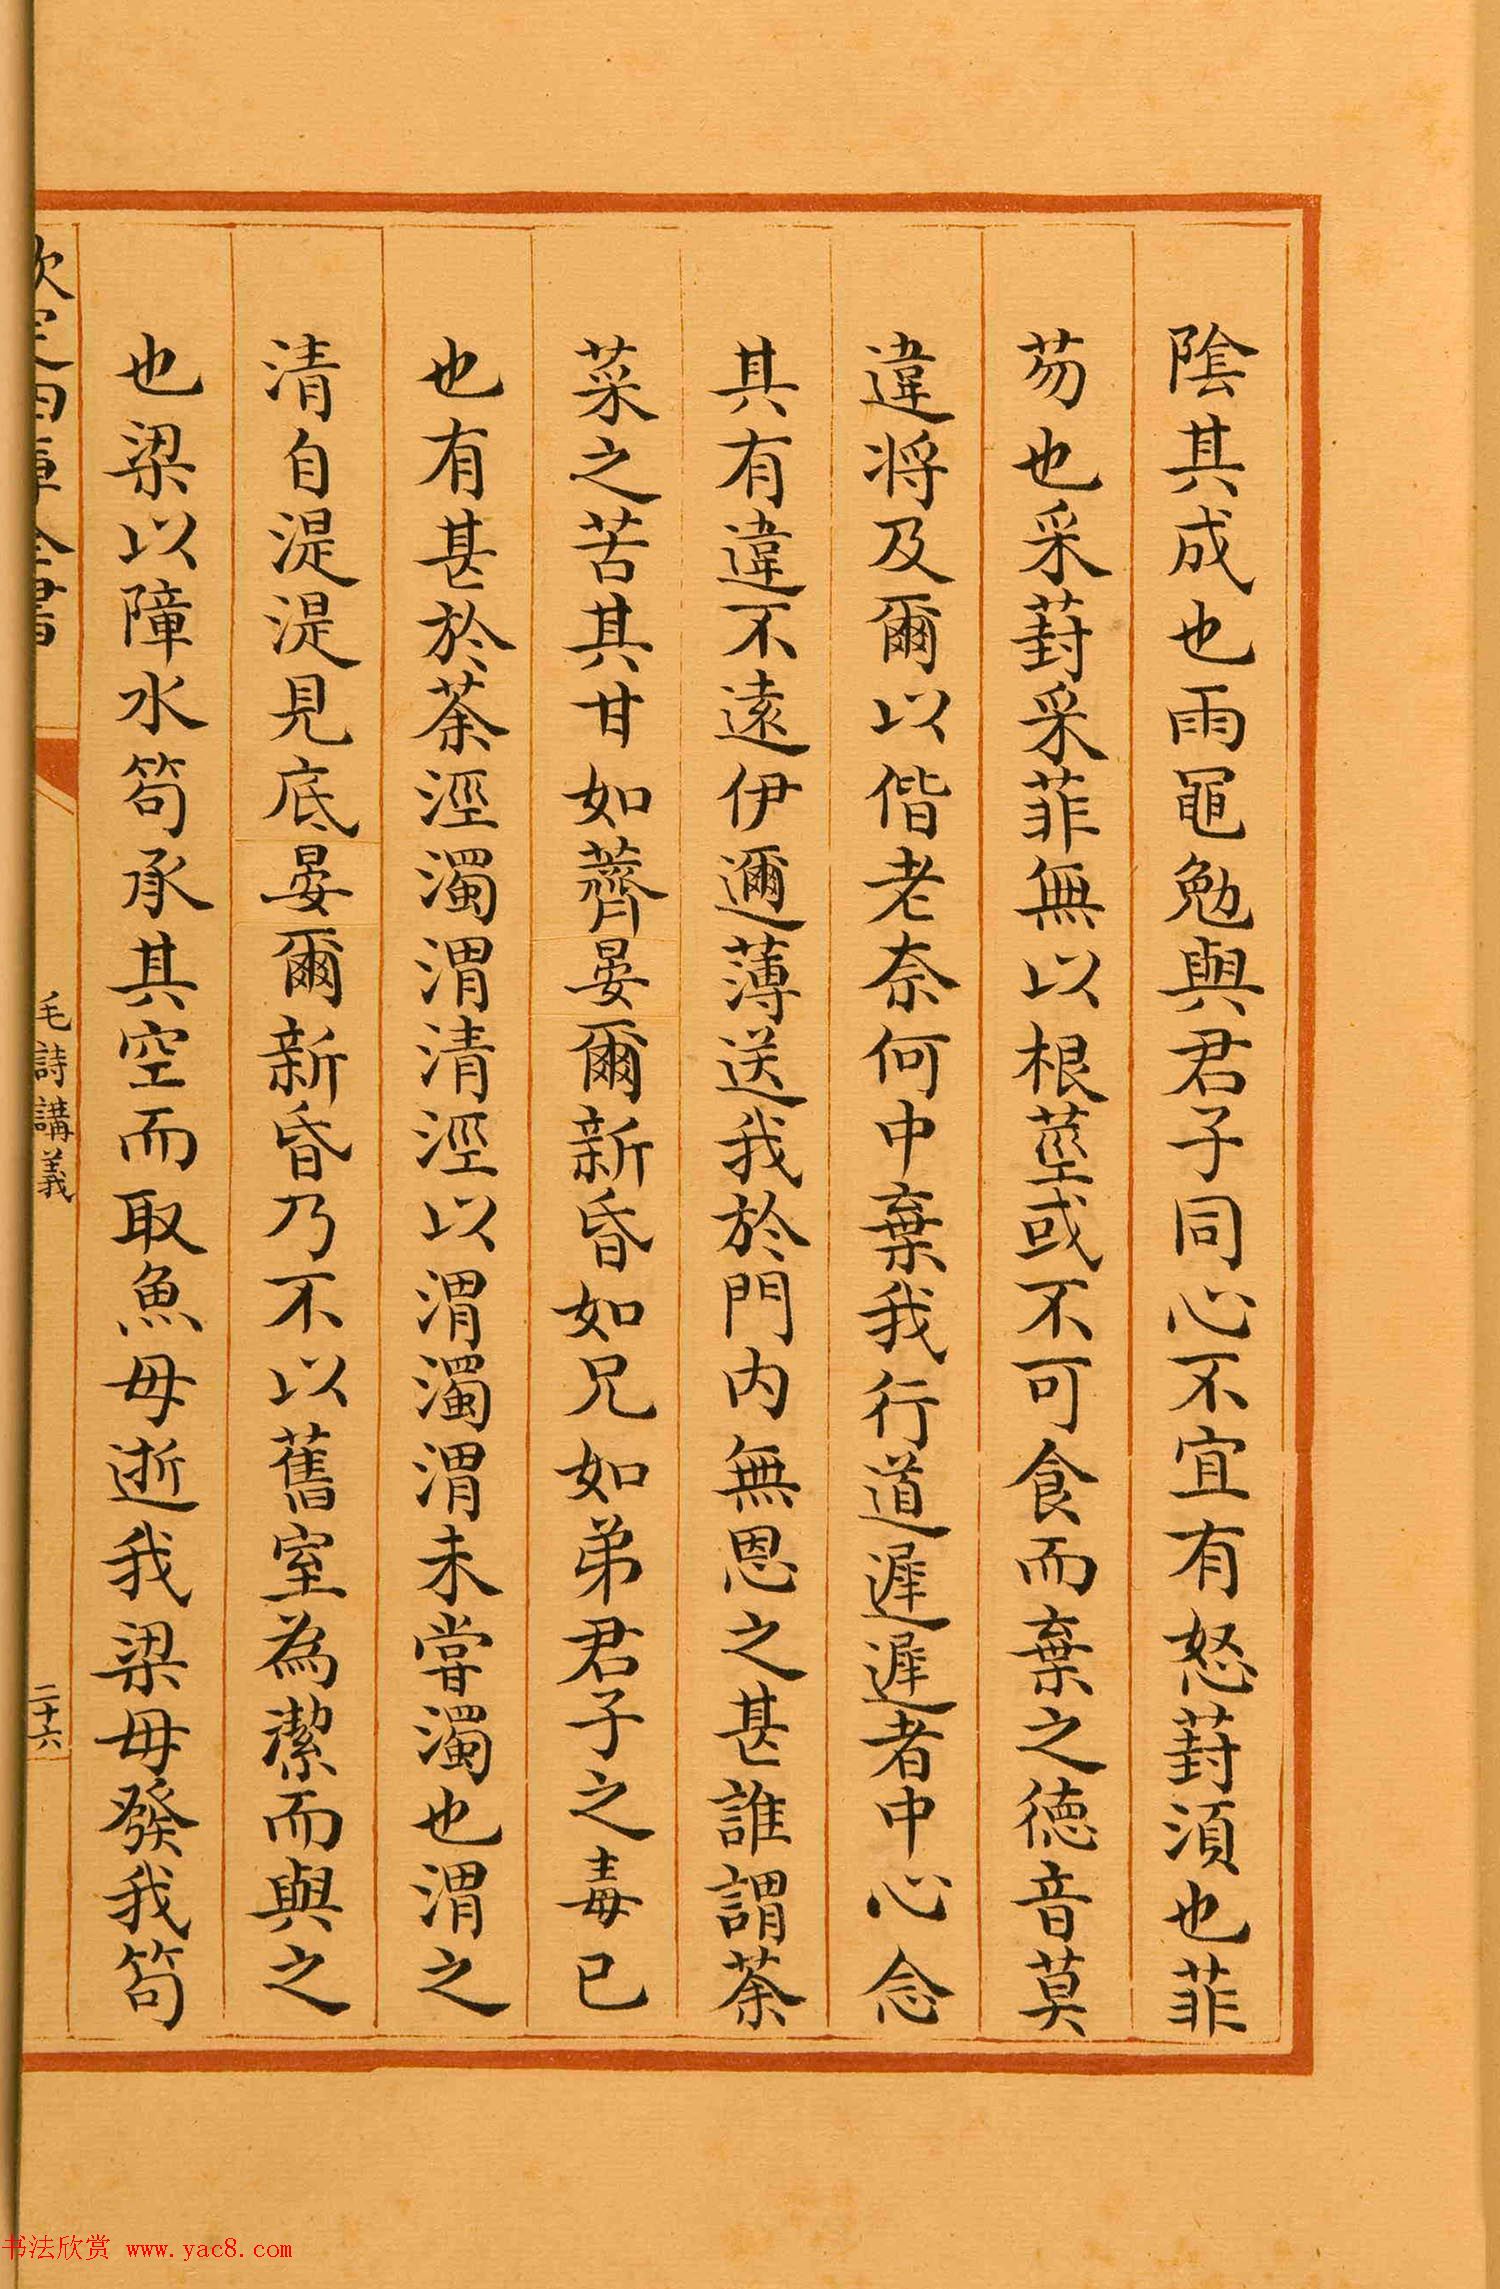 陰其成也雨黽勉與君子同心不宜有怒葑須也菲
芴也采葑采菲無以根莖或不可食而棄之德音莫
違將及爾以偕老奈何中棄我行道遲遲者中心念
其有違不遠伊邇薄送我於門内無恩之甚誰謂荼
菜之苦其甘如薺晏爾新昏如兄如弟君子之毒已
也有甚於荼涇濁渭清涇以渭濁渭未嘗濁也渭之
清自湜湜見底晏爾新昏乃不以舊室為潔而與之
也梁以障水笱承其空而取魚毋逝我梁毋發我笱
欽定四庫全書
毛詩講義
二十六
书法欣赏 www.yac8.com